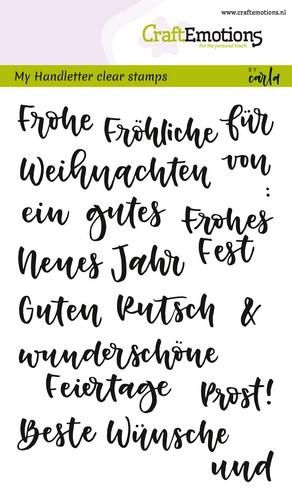 www.craftemotions.nl
CraftEmotions
For the personal touch
My Handletter clear stamps
BY carla
Frohe Fröhliche für
Weihnachten von
:
ein gutes Frohes
Neues Jahr Fest
Guten Rutsch &
wunderschöne
Feiertage Prost!
Beste Wünsche
und